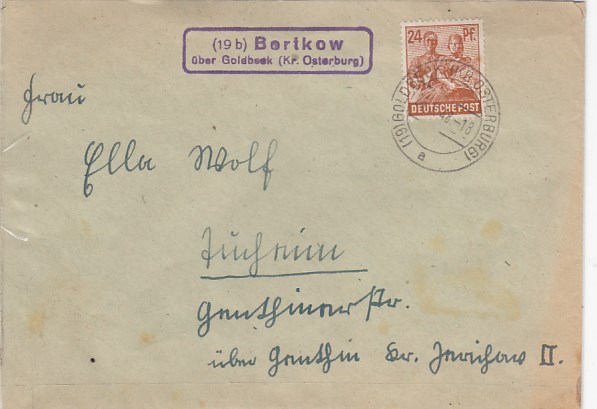 (19b) Bertkow
über Goldbeck (Kr. Osterburg)
24 Pf.
DEUTSCHE POST
(19) GOLDBECK (KR. OSTERBURG)
48.-18
a
Frau
Ella Wolf
Tucheim
Genthinerstr.
über Genthin Kr. Jerichow II.